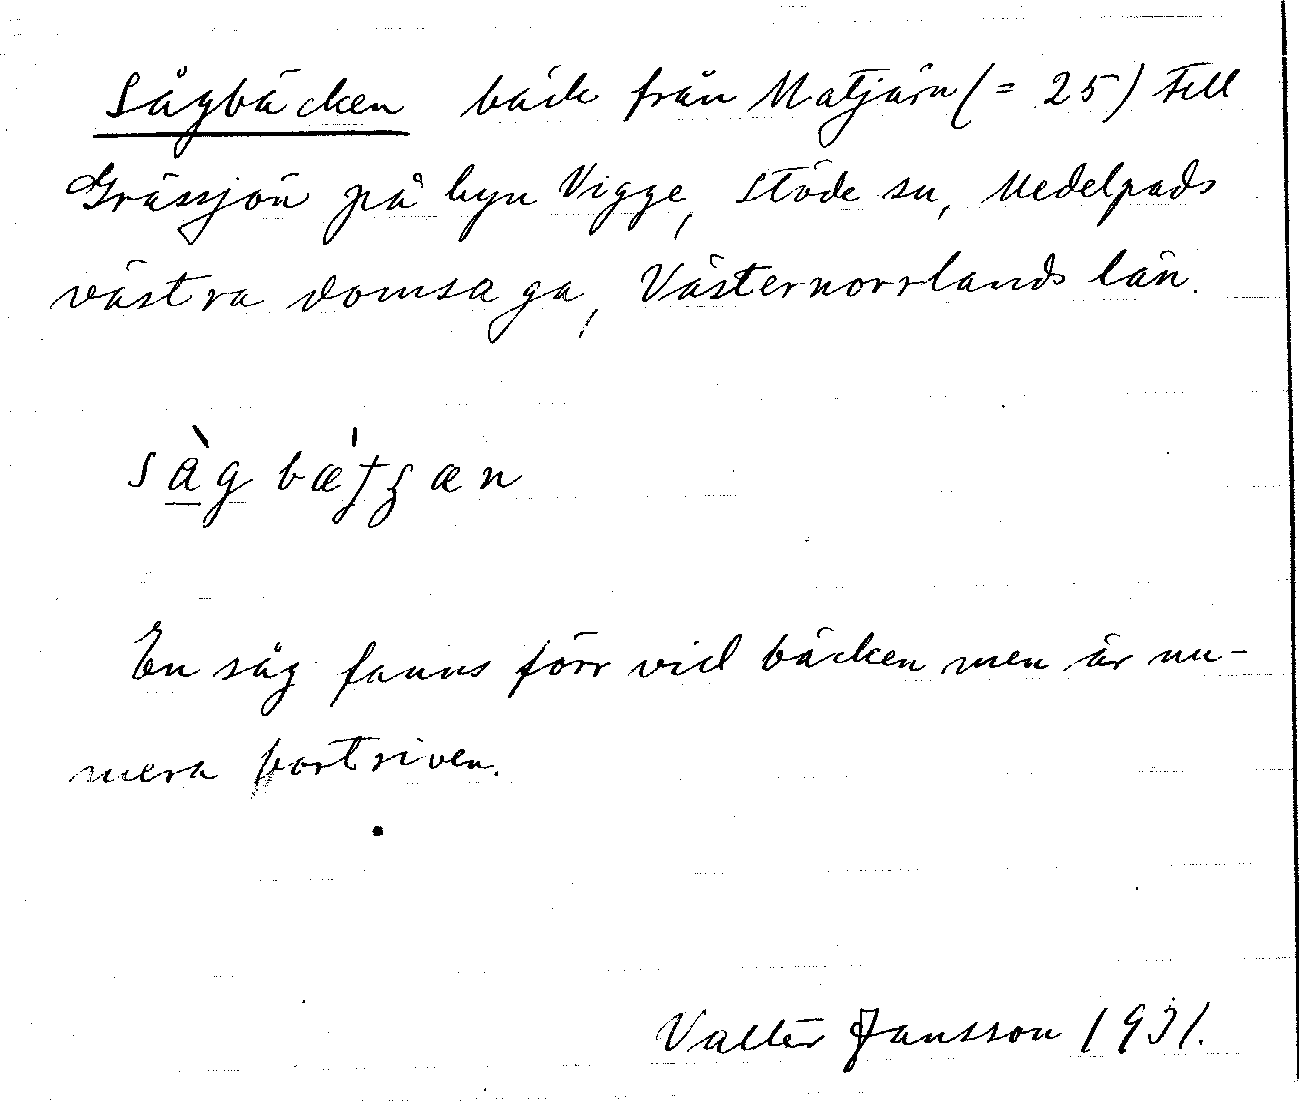 Sågbäcken bäck från Matjärn (= 25) till
Grässjön på byn Vigge, Stöde sn, Medelpads
västra domsaga, Västernorrlands län.
En såg fanns förr vid bäcken men är nu-
mera bortriven.
Valter Jansson 1931.